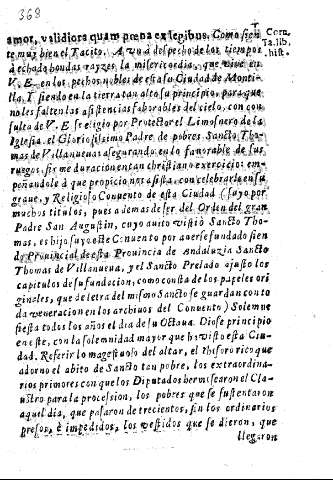 368
amor, validiora quam pœna ex legibus. Como sien
te muy bien el Tacito. A vuã despecho de los tiempos
à echado hondas rayzes la misericordia, que vive en
V. E. en los pechos nobles de esta su Ciudad de Monti-
lla. I siendo en la tierra tan alto su principio, para que
no les falten las asistencias faborables del cielo, con con-
sulta de V. E. se eligio por Protector el Limosnero de la
Iglesia, el Gloriosissimo Padre de pobres Sancto Tho-
mas de Villanueua: asegurando en lo favorable de sus
ruegos, firme duracion en tan christiano exercicio: em-
peñandole à que propicio nos asista, con celebrarle en su
graue, y Religioso Conuento de esta Ciudad (suyo por
muchos titulos, pues ademas de ser del Orden del gran
Padre San Augustin, cuyo auito vistiò Sancto Tho-
mas, es hijo suyo este Conuento por auerse fundado sien
do Provincial de esta Provincia de Andaluzia Sancto
Thomas de Villanueva, y el Sancto Prelado ajusto los
capitulos de su fundacion, como consta de los papeles ori
ginales, que de letra del mismo Sancto se guardan con to
da veneracion en los archivos del Convento) Solemne
fiesta todos los años el dia de su Octaua. Diose principio
en este, con la solemnidad mayor que ha visto esta Ciu-
dad. Referir lo magestuoso del altar, el thesoro rico que
adorno el abito de Sancto tan pobre, los extraordina-
rios primores con que los Diputados hermosearon el Cla-
ustro para la procession, los pobres que se sustentaron
aquel dia, que pasaron de trecientos, sin los ordinarios
presos, è impedidos, los vestidos que se dieron, que
llegaron
Corn.
Ta. lib.
hist.